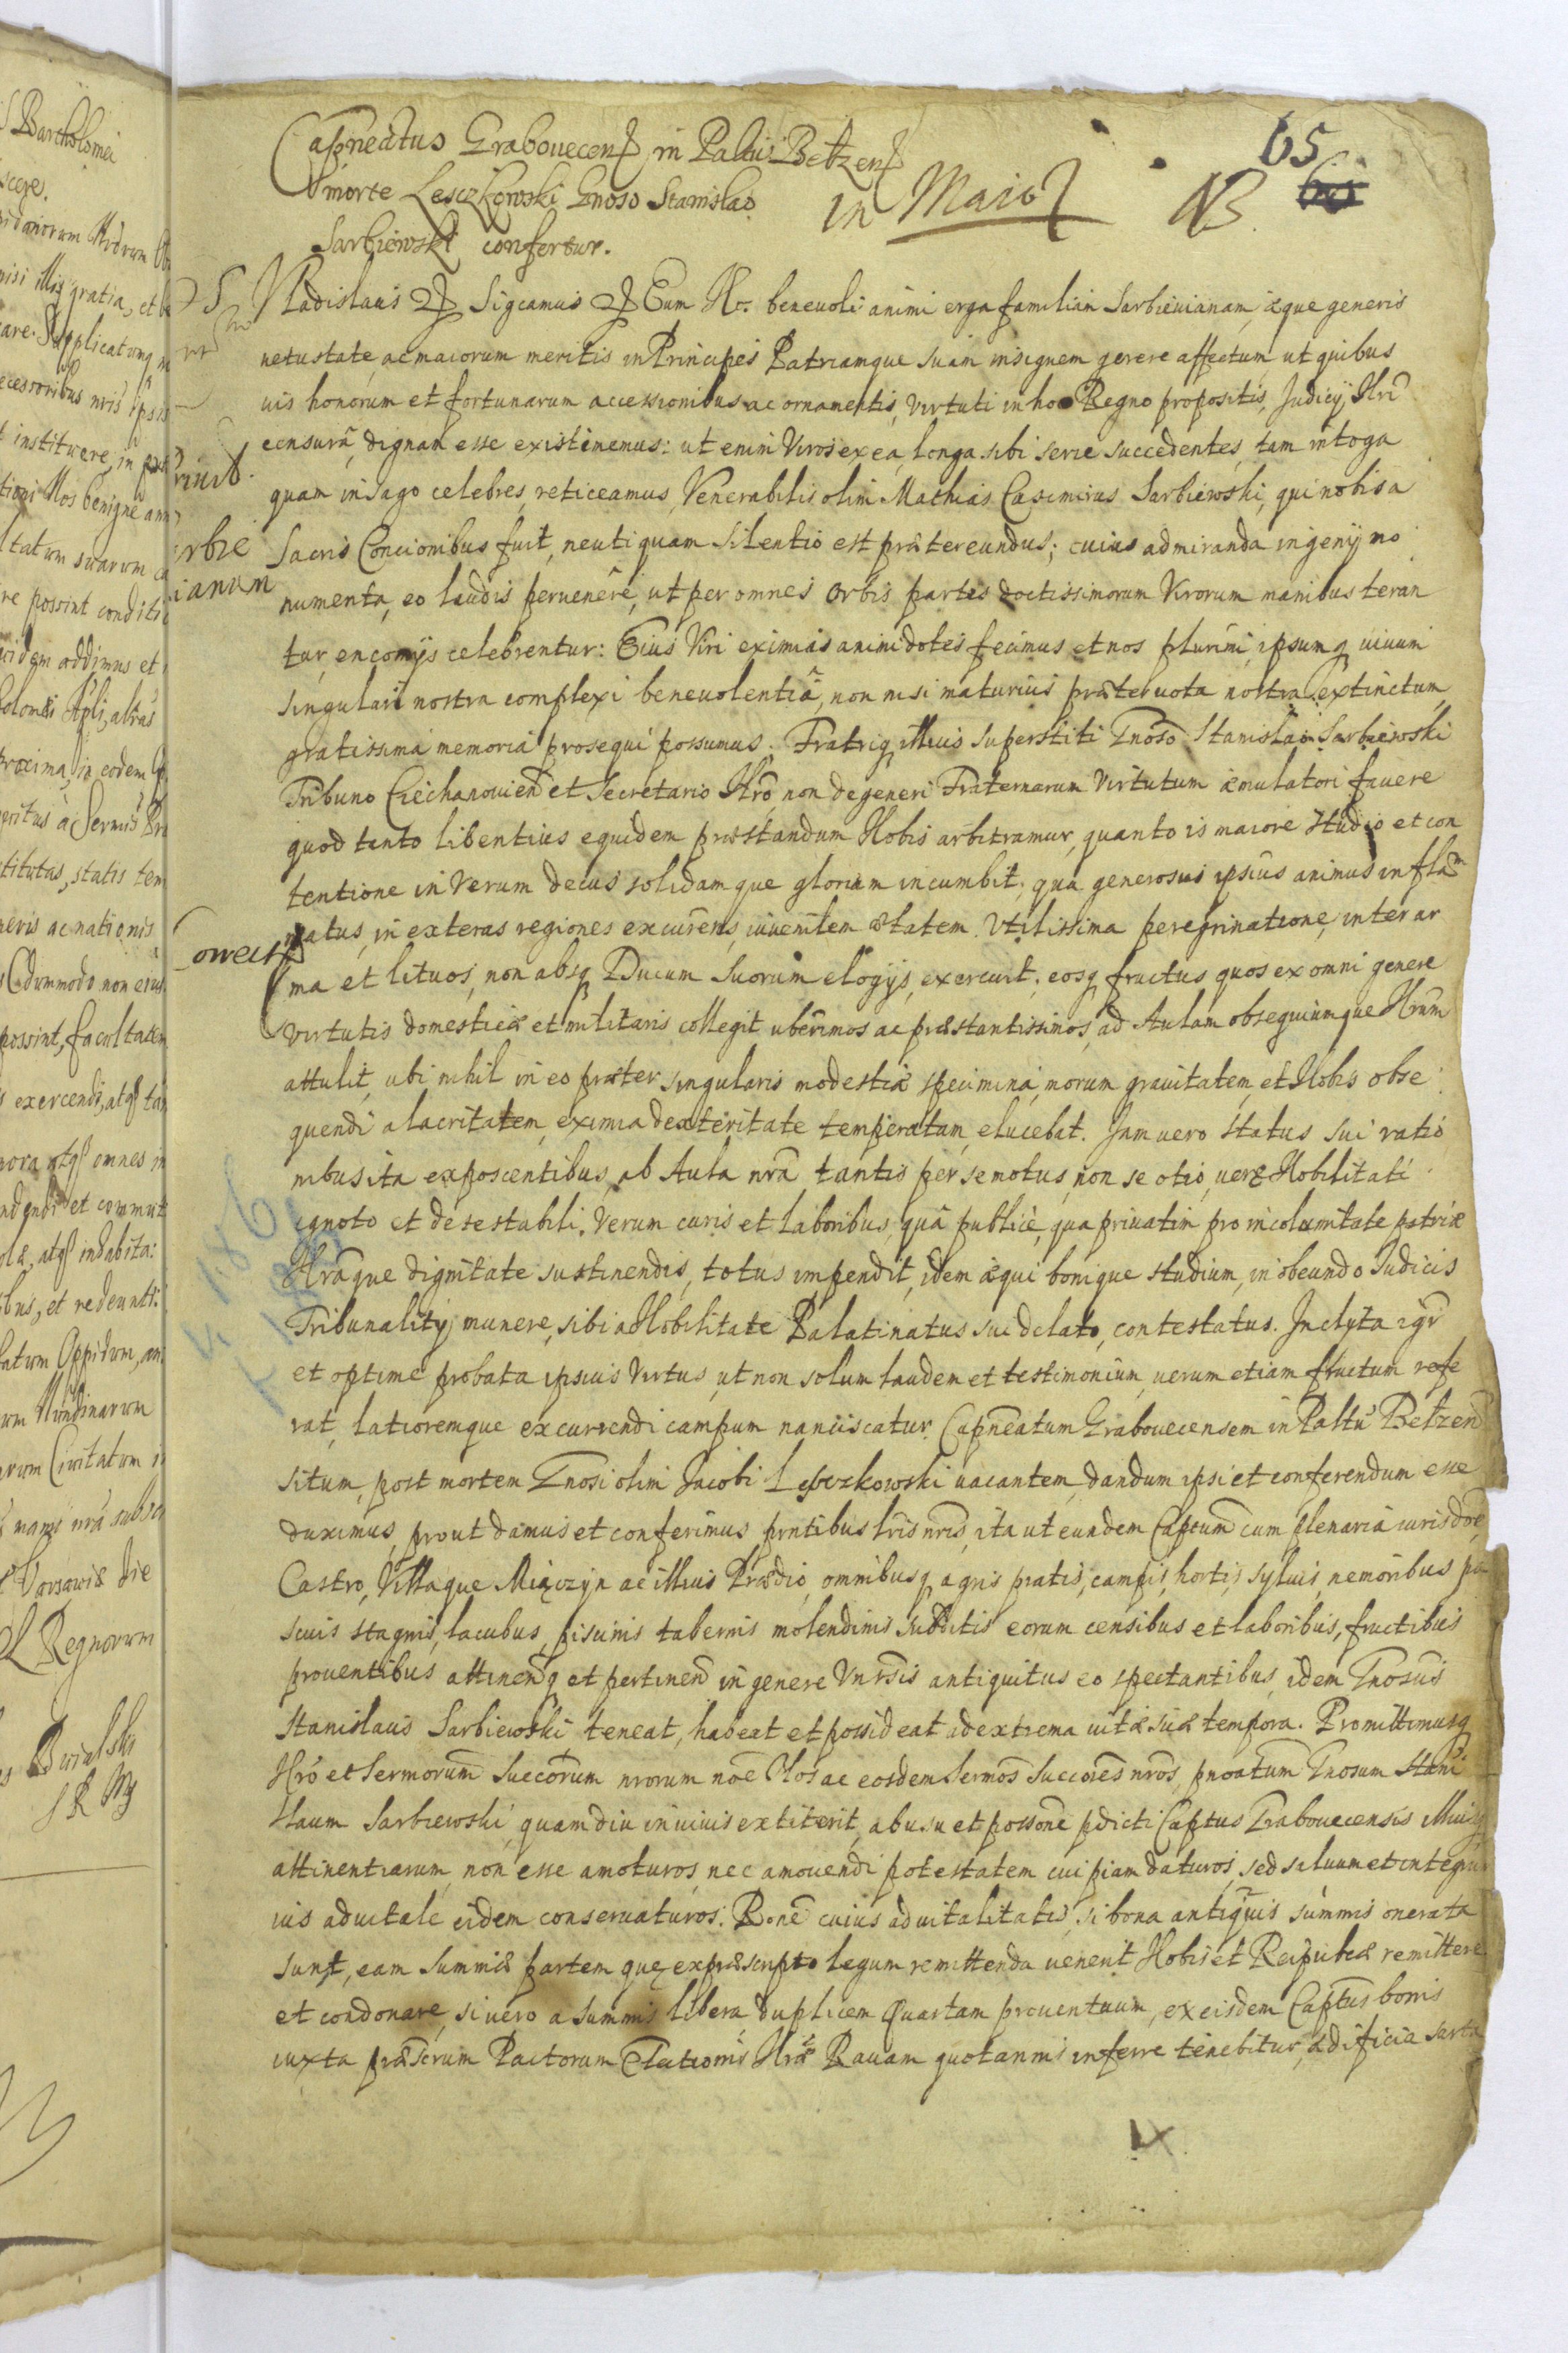 Bartholomei
scere.
gratia, et
Supplicationq
instituere, in
Nos benigne
suarum
re possint
addimus et
proxima, in eodem
titutas, statis tem
neris ac nationis
dummodo non eius
possint, facultatem
exercendi, atq
atq omnes in
et commut
atq inhabita:
bus, et redeunti:
Oppidum, an
Nundinarum
Civitatum
nra
Varsaviæ die
Regnorum
65
NB.
in Maio
Capneatus Grabovecens in Paltu Betzens
morte Lesczkowski Gnoso Stanislao
Sarbiewski confertur.
Vladislaus Sigcamus Cum No. beneuoli animi erga familiam Sarbieuianam, æque generis
uetustate, ac maiorum meritis in Principes Patriamque suam insignem gerere affectum, ut quibus
uis honorum et fortunarum accessionibus ac ornamentis, virtuti in hoc Regno propositis, Judicy Nri
censurâ, dignam esse existimemus: ut enim Viros ex ea, longa sibi serie succedentes, tam in toga
quam in sago celebres, reticeamus, Venerabilis olim Mathias Casimirus Sarbiewski, qui nobis a
Sacris Concionibus fuit, neutiquam silentio est prætereundus; cuius admiranda ingenij mo
numenta, eo laudis peruenêre, ut per omnes Orbis partes doctissimorum Virorum manibus teran
tur, encomijs celebrentur: Eius Viri eximias animi dotes fecimus et nos plurimi, ipsumq uiuum
singulari nostra complexi beneuolentiâ, non nisi maturius præter uota nostra extinctum,
gratissima memoriâ prosequi possumus. Fratriq illius superstiti Gnoso Stanislao Sarbiewski
Tribuno Ciechanouien et Secretario Nro, non degeneri Fraternarum Virtutum æmulatori fauere
quod tanto libentius equidem præstandum Nobis arbitramur, quanto is maiore studio et con
tentione in verum decus solidamque gloriam incumbit; qua generosus ipsius animus inflam
matus, in exteras regiones excurrens, iuuenilem ætatem utilissima peregrinatione, inter ar
ma et lituos, non absq Ducum suorum elogijs, exercuit; eosq fructus quos ex omni genere
virtutis domesticæ et militaris collegit uberrimos ac præstantissimos, ad Aulam obsequiumque Nrum
attulit, ubi nihil in eo præter singularis modestiæ specimina, morum grauitatem, et Nobis obse
quendi alacritatem, eximia dexteritate temperatam, elucebat. Jam uero status sui ratio
nibus ita exposcentibus, ab Aula nra tantis per semotus, non se otio, uere Nobilitati
ignoto et detestabili, verum curis et laboribus, quâ publice, qua priuatim pro incolumitate patriæ
Nraque dignitate sustinendis, totus impendit, idem æqui bonique studium, in obeundo Iudicis
Tribunality munere, sibi a Nobilitate Palatinatus sui delato, contestatus. Inclyta igr
et optime probata ipsius virtus, ut non solum laudem et testimonium, uerum etiam fructum refe
rat, latioremque excurrendi campum nanciscatur. Capneatum Grabouecensem in Paltu Betzen
situm, post mortem Gnosi olim Jacobi Lesczkowski uacantem, dandum ipsi et conferendum esse
duximus, prout damus et conferimus pntibus lris nris, ita ut eundem Captum cum plenaria iurisdoe,
Castro, Villaque Miączyn ac illius Prædio, omnibusq agris pratis, campis, hortis, syluis, nemoribus pa
scuis stagnis, lacubus, piscinis tabernis molendinis subditis eorum censibus et laboribus, fructibus
prouentibus attinenq et pertinen in genere Unrsis antiquitus eo spectantibus, idem Gnosus
Stanislaus Sarbiewski teneat, habeat et possideat ad extrema uitæ suæ tempora. Promittimusq
Nro et Sermorum Succorum nrorum noe Nos ac eosdem Sermos Succores nros, pnoatum Gnosum Stani
slaum Sarbiewski, quamdiu in uiuis extiterit, ab usu et possone pdicti Captus Grabouecensis illiusq
attinentiarum, non esse amoturos, nec amouendi potestatem cuipiam daturos, sed saluum et integrum
ius aduitale eidem conseruaturos. Rone cuius aduitalitatis, si bona antiquis summis onerata
sunt, eam summæ partem quę ex præscripto legum remittenda uenerit Nobis et Reipubcæ remittere
et condonare, si uero a summis libera duplicem Quartam prouentuum, ex eisdem Captus bonis
iuxta præscrum Pactorum Elationis Nræ Rauam quotannis inferre tenebitur, ædificia sarta
IX